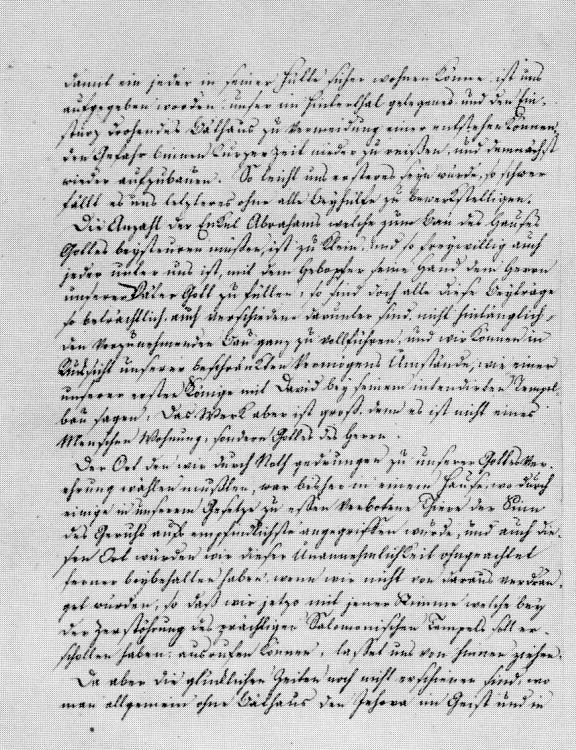 damit ein jeder in seiner Hütte sicher wohnen könne ist uns
aufgegeben worden: unser im Hinterthal gelegenes, und den Ein-
sturz drohendes Bäthaus zu Vermeidung einer entstehen können
den Gefahr binnen kurzer Zeit nieder zu reißen, und demnächst
wieder aufzubauen. So leicht uns ersteres seyn würde, so schwer
fällt es uns letzteres ohne alle Beyhülfe zu bewerkstelligen.
Die Anzahl der Enkel Abrahams welche zum Bau des Hauses
Gottes beysteuren müsten, ist zu klein, und so freywillig auch
jeder unter uns ist, mit dem Hebopfer seine Hand dem Herrn
unserer Väter Gott zu füllen, so sind doch alle diese Beyträge
so beträchtlich auch verschiedene darunter sind, nicht hinlänglich,
den vorzunehmenden Bau ganz zu vollführen, und wir können in
Rücksicht unserer beschränkten Vermögens Umstände, wie einer
unserer ersten Könige mit David bey seinem intendirten Tempel-
bau sagen: Das Werk aber ist groß, denn es ist nicht eines
Menschen Wohnung, sondern Gottes des Herrn.
Der Ort den wir durch Noth gedrungen zu unserer Gottes Ver-
ehrung wählen mußten, war bisher in einem Hause, wo durch
einige in unserem Gesetze zu essen verbotene Thiere der Sinn
des Geruchs aufs empfindlichste angegriffen wurde, und auch die-
sen Ort würden wir dieser Unannehmlichkeit ohngeachtet
ferner beybehalten haben, wenn wir nicht von daraus verdrän-
get würden, so daß wir jetzo mit jener Stimme welche bey
der Zerstöhrung des prächtigen Salomonischen Tempels soll er-
schollen haben: ausrufen können, lasset uns von hinnen ziehen.
Da aber die glücklichen Zeiten noch nicht erschienen sind, wo
man allgemein ohne Bäthaus den Jehova im Geist und in